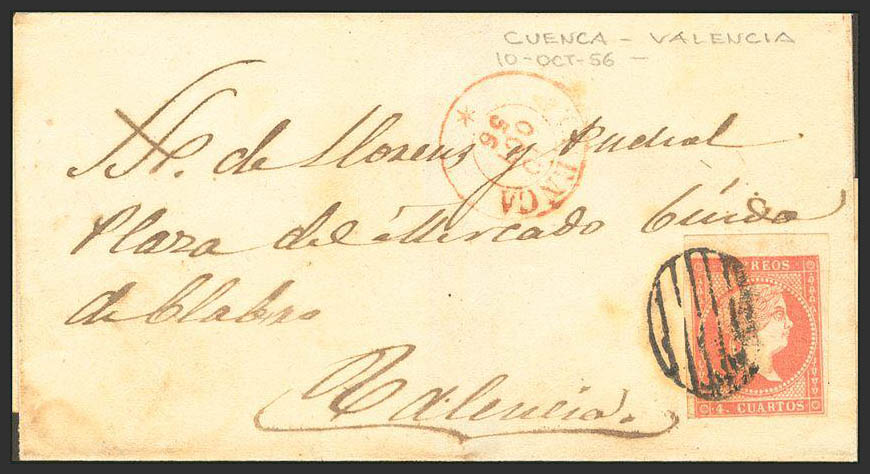 CUENCA - VALENCIA
10-OCT-56 -
CUENCA
10 OCT 56
de Llorens y
Plaza del Mercado
de
Valencia.
CORREOS
4 CUARTOS